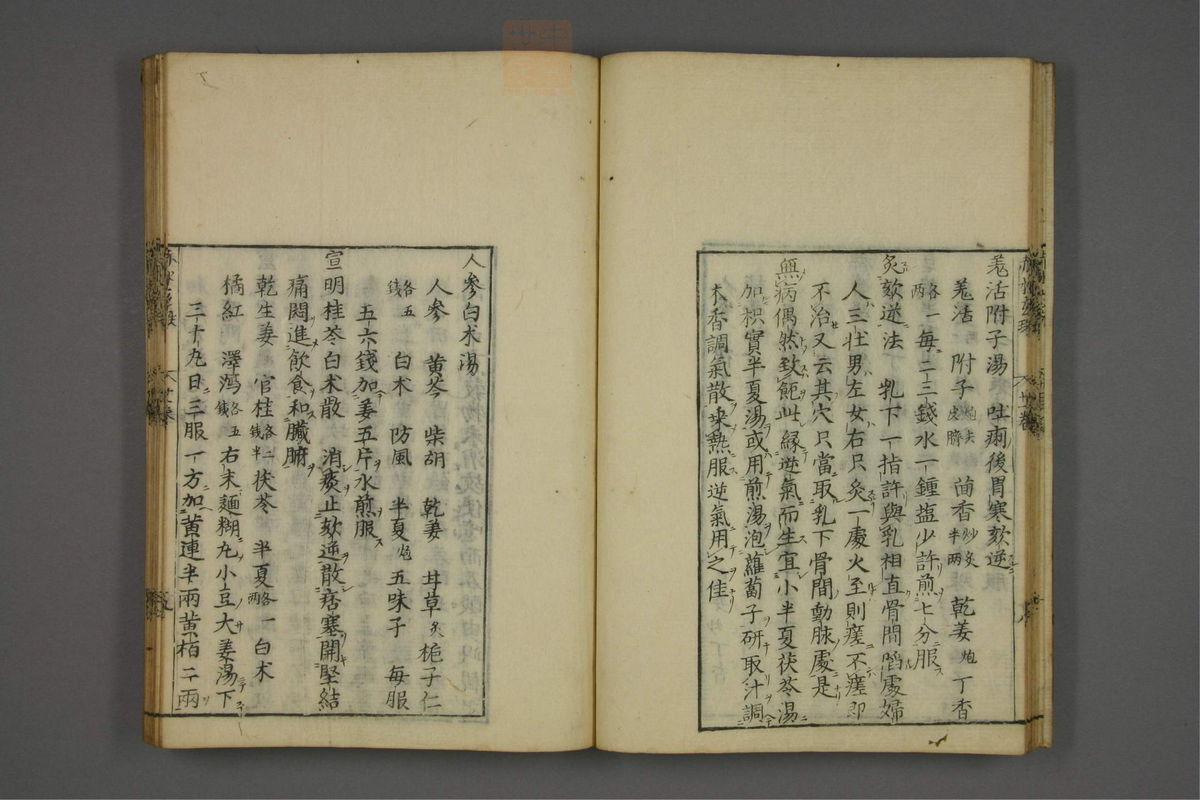 羗活附子湯　吐痢後胃寒欬逆
羗活　附子炮去皮臍　茴香炒炙半兩　乾姜炮　丁香
各一兩　每二三錢水一鍾塩少許煎七分服
灸欬逆法　乳下一指許與乳相直骨間陷處婦
人三壯男左女右只灸一處火至則瘥不瘥即
不治又云其穴只當取乳下骨間動脉處是
無病偶然致飽此緣逆氣而生宜小半夏茯苓湯
加枳實半夏湯或用煎湯泡蘿蔔子研取汁調
木香調氣散乗熱服逆氣用之佳
人參白朮湯
人參　黄芩　柴胡　乾姜　甘草炙　梔子仁
各五錢　白朮　防風　半夏炮　五味子　每服
五六錢加姜五片水煎服
宣明桂苓白朮散　消痰止欬逆散痞塞開堅結
痛悶進飲食和臟腑
乾生姜　官桂各二錢半　茯苓　半夏各一兩　白朮
橘紅　澤瀉各五錢　右末麺糊丸小豆大姜湯下
三十九日三服一方加黄連半兩黄栢二兩